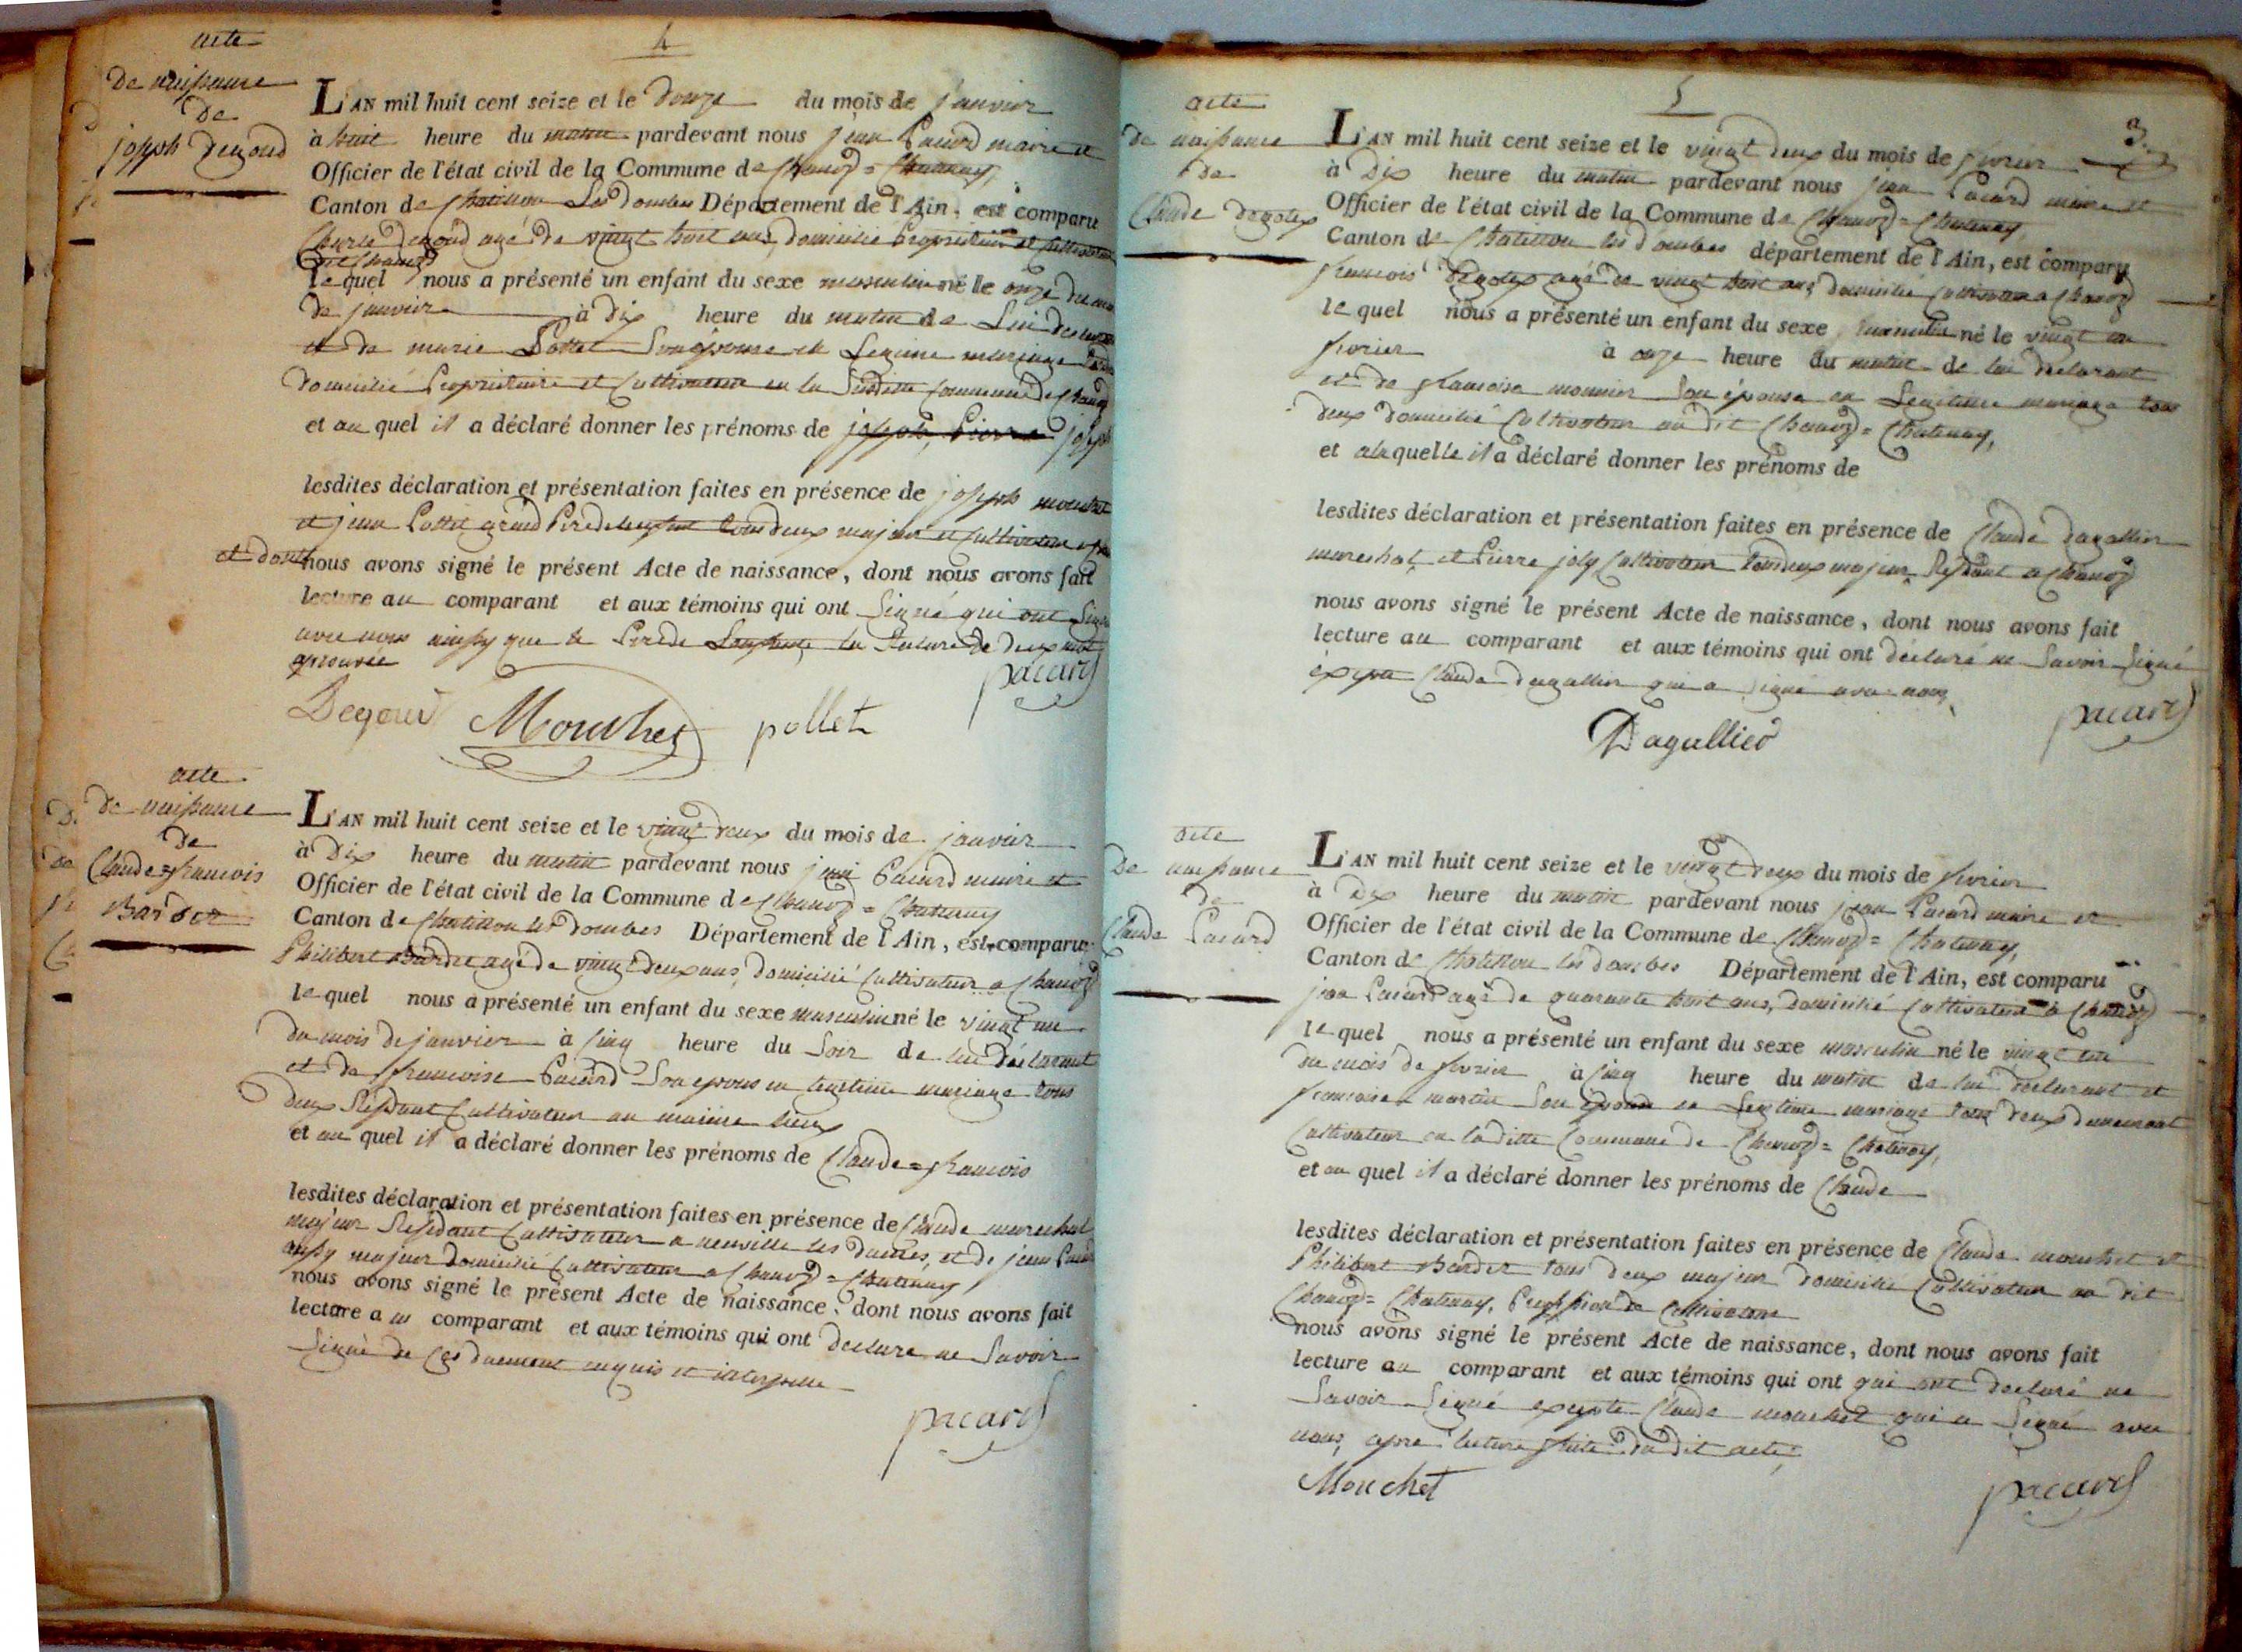 4
acte
de naissance
de
joseph Degoud
L'AN mil huit cent seize et le Douze du mois de janvier
à huit heure du matin pardevant nous jean Pacard maire et
Officier de l'état civil de la Commune de Chanoz = Chatenay,
Canton de Chatillon Les dombes Département de l'Ain, est comparu
Degoud agé de vingt huit ans, domicilié Proprietaire et Cultivateur
a Chanoz
lequel nous a présenté un enfant du sexe masculin né le onze du mois
de janvier à dix heure du matin de Lui declarant
et de marie Pollet Son epouse en Legitime mariage
domicilié Proprietaire et Cultivateur en la Susditte Commune de Chanoz
et au quel il a déclaré donner les prénoms de joseph, Pierre joseph
lesdites déclaration et présentation faites en présence de joseph mouchet
et jean Pollet grand Pere de lenfant tous deux majeur et Cultivateur
et dont nous avons signé le présent Acte de naissance, dont nous avons fait
lecture au comparant et aux témoins qui ont Signé qui ont Signé
avec nous ainsy que le Pere de Lenfant, la Rature de deux mots
aprouvée
pacard
Degoud Mouchet pollet
acte
de naissance
de
Claude=francois
Bardet
L'AN mil huit cent seize et le vingt deux du mois de janvier
à Dix heure du matin pardevant nous jean Pacard maire et
Officier de l'état civil de la Commune de Chanoz = Chatenay
Canton de Chatillon les dombes Département de l'Ain, est comparu
Philibert Bardet agé de vingt deux ans, domicilié Cultivateur a Chanoz
lequel nous a présenté un enfant du sexe masculin né le vingt un
du mois de janvier à Cinq heure du Soir de lui déclarant
et de francoise Pacard Son epouse en legitime mariage tous
deux Residant Cultivateur au maime lieux
et au quel il a déclaré donner les prénoms de Claude=francois
lesdites déclaration et présentation faites en présence de Claude marechal
majeur Residant Cultivateur a neuville les dames, et de jean Pacard
aussy majeur domicilié Cultivateur a Chanoz = Chatenay,
nous avons signé le présent Acte de naissance, dont nous avons fait
lecture au comparant et aux témoins qui ont declare ne Savoir
Signé de Ces duement requis et interpelle
pacard
5
3.
acte
de naissance
de
Claude Degolex
L'AN mil huit cent seize et le vingt deux du mois de fevrier
à Dix heure du matin pardevant nous jean Pacard maire et
Officier de l'état civil de la Commune de Chanoz = Chatenay,
Canton de Chatillon les dombes département de l'Ain, est comparu
francois Degolex agé de vingt huit ans, domicilié Cultivateur a Chanoz
lequel nous a présenté un enfant du sexe né le vingt un
fevrier à onze heure du matin de lui declarant
et de francoise monnier Son épouse en Legitime mariage tous
deux domicilié Cultivateur au dit Chanoz = Chatenay,
et alaquelle il a déclaré donner les prénoms de
lesdites déclaration et présentation faites en présence de Claude dagallier
mareshal, et Pierre joly Cultivateur tous deux majeur Residant a Chanoz
nous avons signé le présent Acte de naissance, dont nous avons fait
lecture au comparant et aux témoins qui ont declaré ne Savoir Signé
Claude dagallier qui a signé avec nous,
pacard
Dagallier
acte
de naissance
de
Claude Pacard
L'AN mil huit cent seize et le vingt deux du mois de fevrier
à Dix heure du matin pardevant nous jean Pacard maire et
Officier de l'état civil de la Commune de Chanoz = Chatenay,
Canton de Chatillon les dombes Département de l'Ain, est comparu
Pacard agé de quarante huit ans, domicilié Cultivateur à Chanoz
lequel nous a présenté un enfant du sexe masculin né le vingt un
du mois de fevrier à Cinq heure du matin de lui declarant et
francoise martin Son épouse en Legitime mariage tous deux demeurant
Cultivateur en laditte Commune de Chanoz = Chatenay,
et au quel il a déclaré donner les prénoms de Claude
lesdites déclaration et présentation faites en présence de Claude mouchet et
Philibert Bardet tous deux majeur domicilié Cultivateur au dit
Chanoz = Chatenay, Proffession de Cultivateur
nous avons signé le présent Acte de naissance, dont nous avons fait
lecture au comparant et aux témoins qui ont qui ont declaré ne
Savoir Signé Claude mouchet qui a Signé avec
nous, apre lecture faite du dit acte,
Mouchet pacard